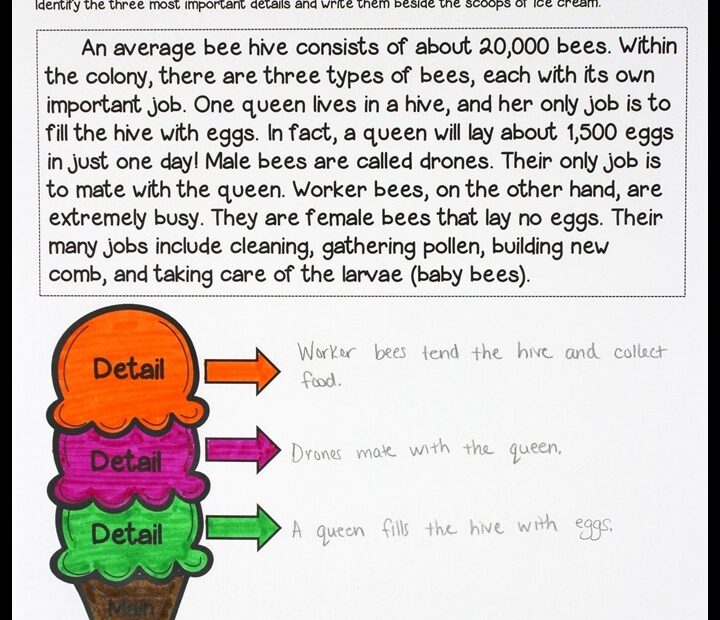 Identify the three most important details and write them beside the scoops of ice cream.
An average bee hive consists of about 20,000 bees. Within
the colony, there are three types of bees, each with its own
important job. One queen lives in a hive, and her only job is to
fill the hive with eggs. In fact, a queen will lay about 1,500 eggs
in just one day! Male bees are called drones. Their only job is
to mate with the queen. Worker bees, on the other hand, are
extremely busy. They are female bees that lay no eggs. Their
many jobs include cleaning, gathering pollen, building new
comb, and taking care of the larvae (baby bees).
Detail
Worker bees tend the hive and collect
food.
Detail
Drones mate with the queen.
Detail
A queen fills the hive with eggs.
Main